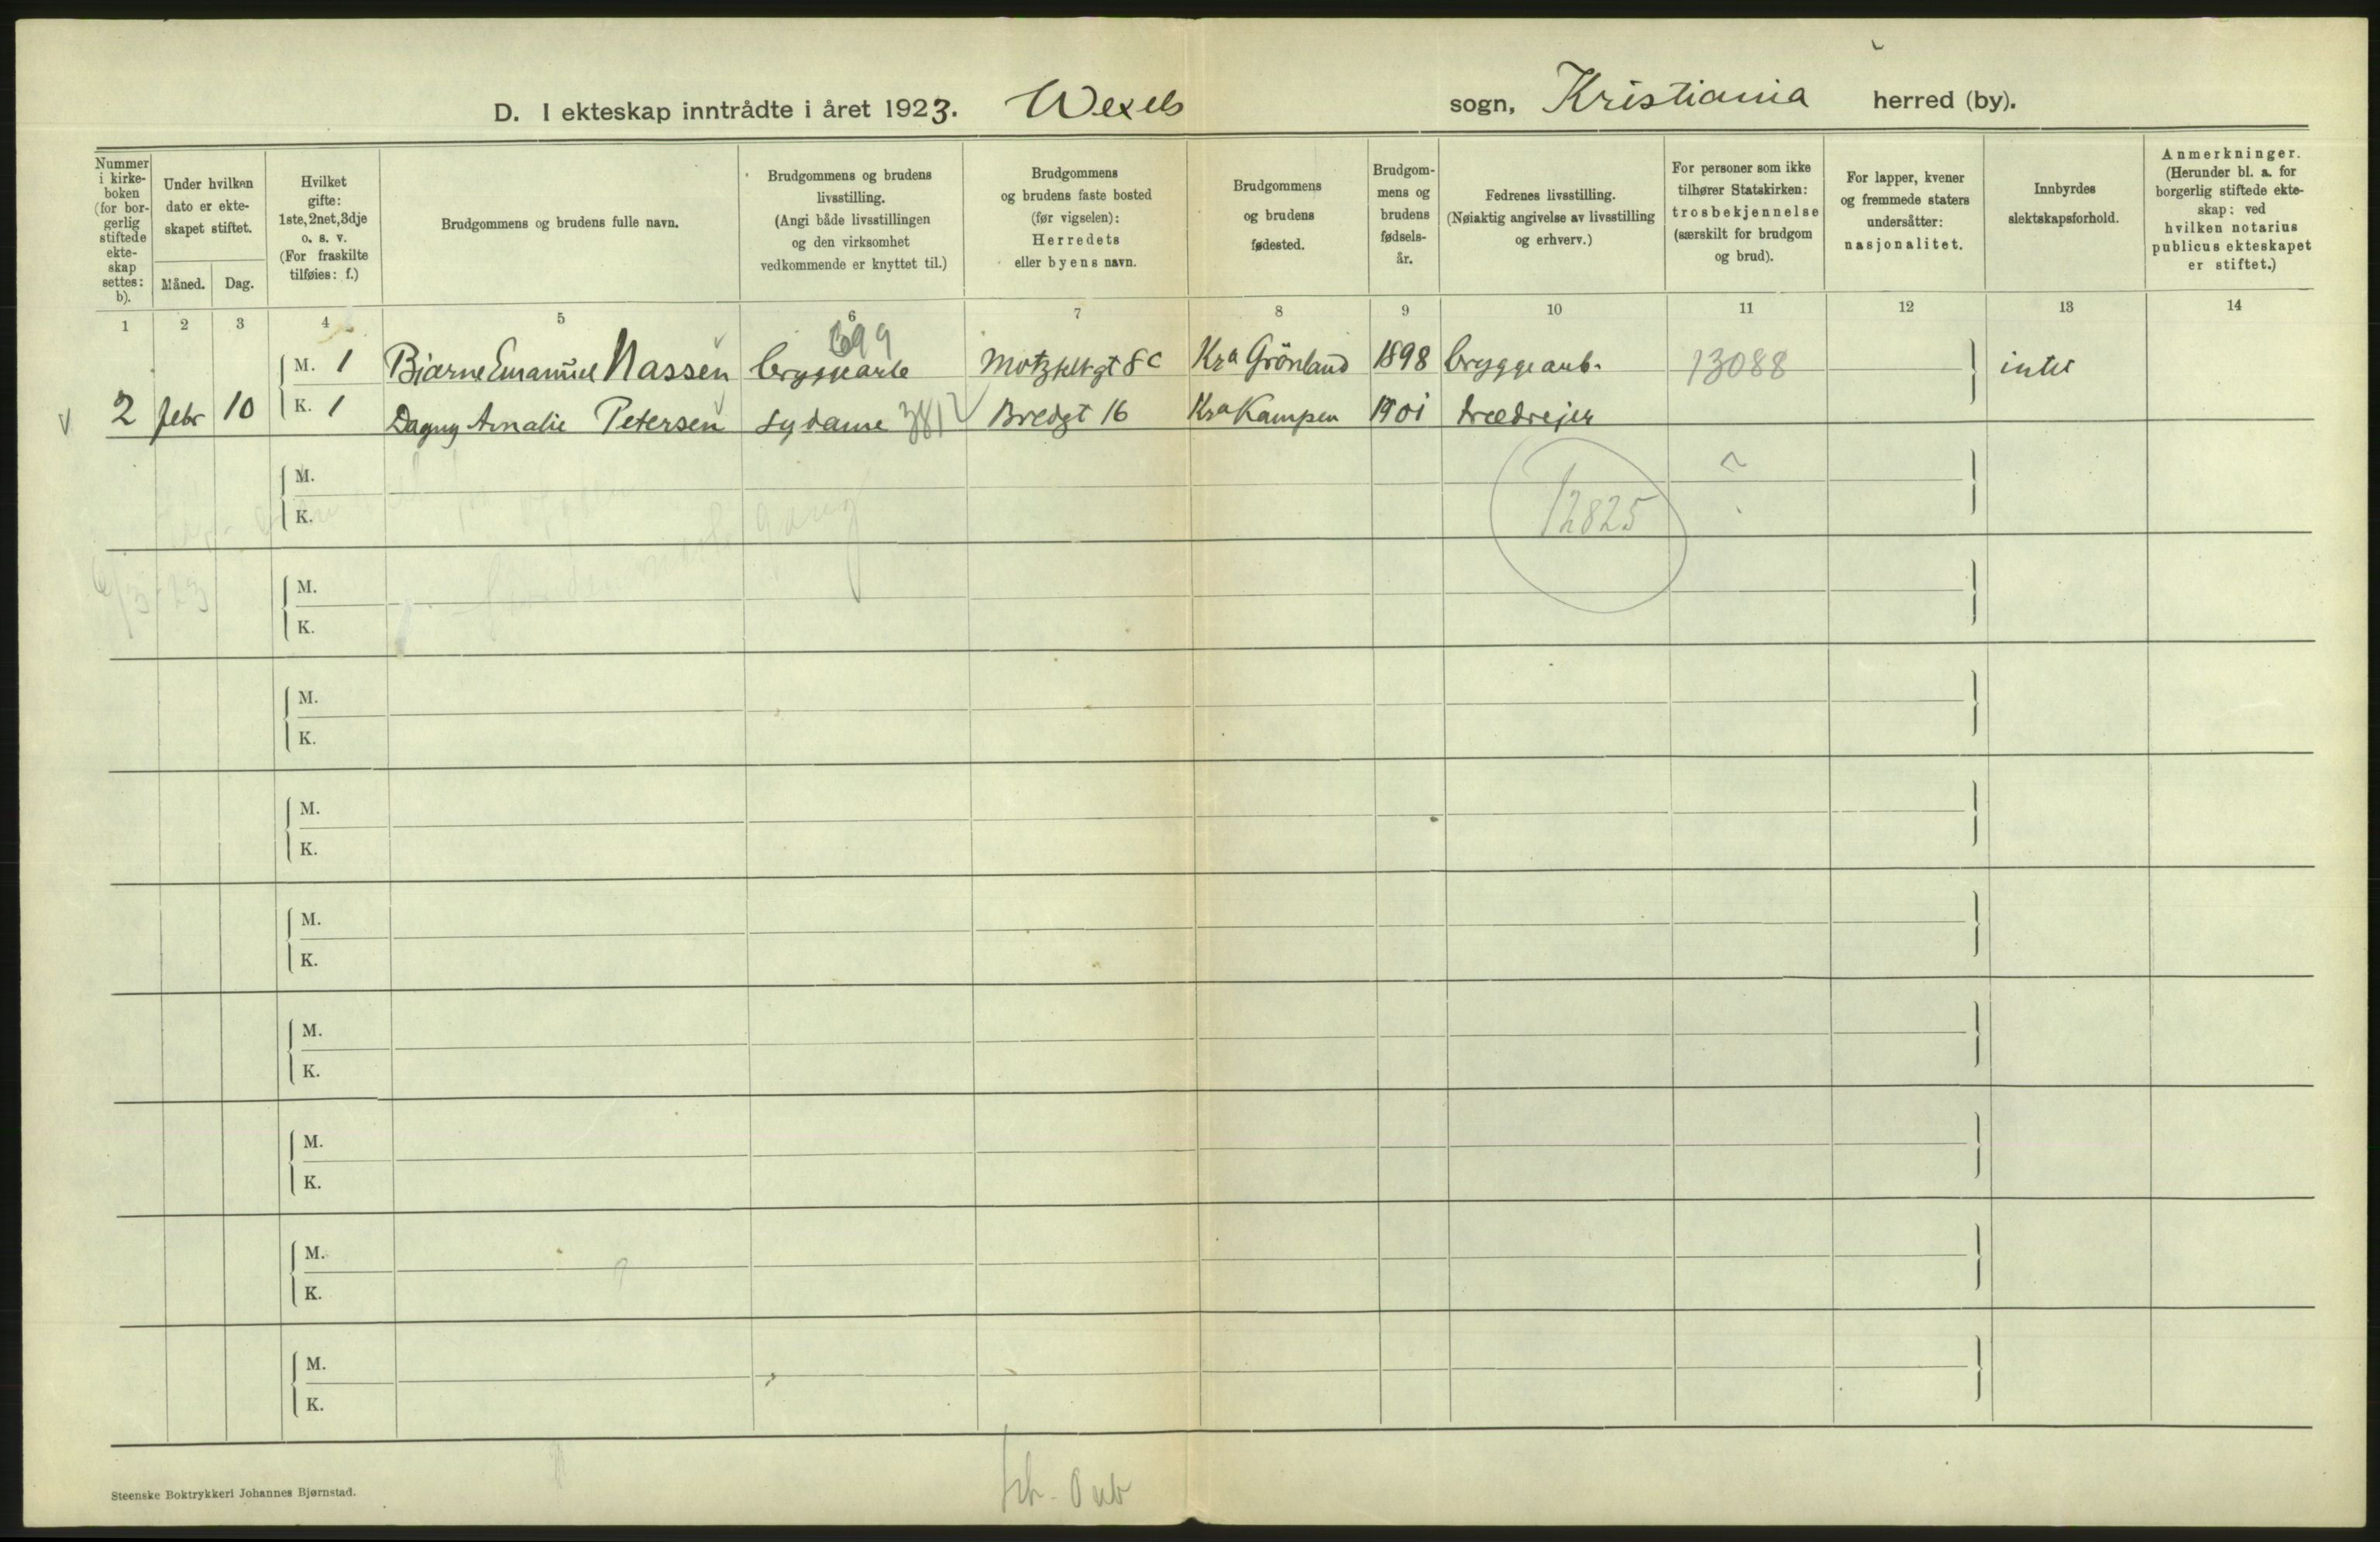 D. I ekteskap inntrådte i året 1923. Wexels sogn, Kristiania herred (by).
Nummer i kirke-boken (for bor-gerlig stiftede ekte-skap settes: b).
Under hvilken dato er ekte-skapet stiftet.
Måned. Dag.
Hvilket gifte: 1ste, 2net, 3dje o. s. v. (For fraskilte tilføies: f.)
Brudgommens og brudens fulle navn.
Brudgommens og brudens livsstilling. (Angi både livsstillingen og den virksomhet vedkommende er knyttet til.)
Brudgommens og brudens faste bosted (før vigselen): Herredets eller byens navn.
Brudgommens og brudens fødested.
Brudgom-mens og brudens fødsels-år.
Fedrenes livsstilling. (Nøiaktig angivelse av livsstilling og erhverv.)
For personer som ikke tilhører Statskirken: trosbekjennelse (særskilt for brudgom og brud).
For lapper, kvener og fremmede staters undersåtter: nasjonalitet.
Innbyrdes slektskapsforhold.
Anmerkninger. (Herunder bl. a. for borgerlig stiftede ekte-skap: ved hvilken notarius publicus ekteskapet er stiftet.)
1 2 3 4 5 6 7 8 9 10 11 12 13 14
699
M. 1 Bjarne Emanuel Nassen bryggearb Motzfeltgt 8c Kra Grönland 1898 bryggearb. 13088 intet
2 febr 10 K. 1 Dagny Amalie Petersen sydame 381 Bredgt 16 Kra Kampen 1901 trædrejer
M.
K. 12825 ?
6/3 23
M.
K.
M.
K.
M.
K.
M.
K.
M.
K.
M.
K.
M.
K.
M.
K.
Steenske Boktrykkeri Johannes Bjørnstad.